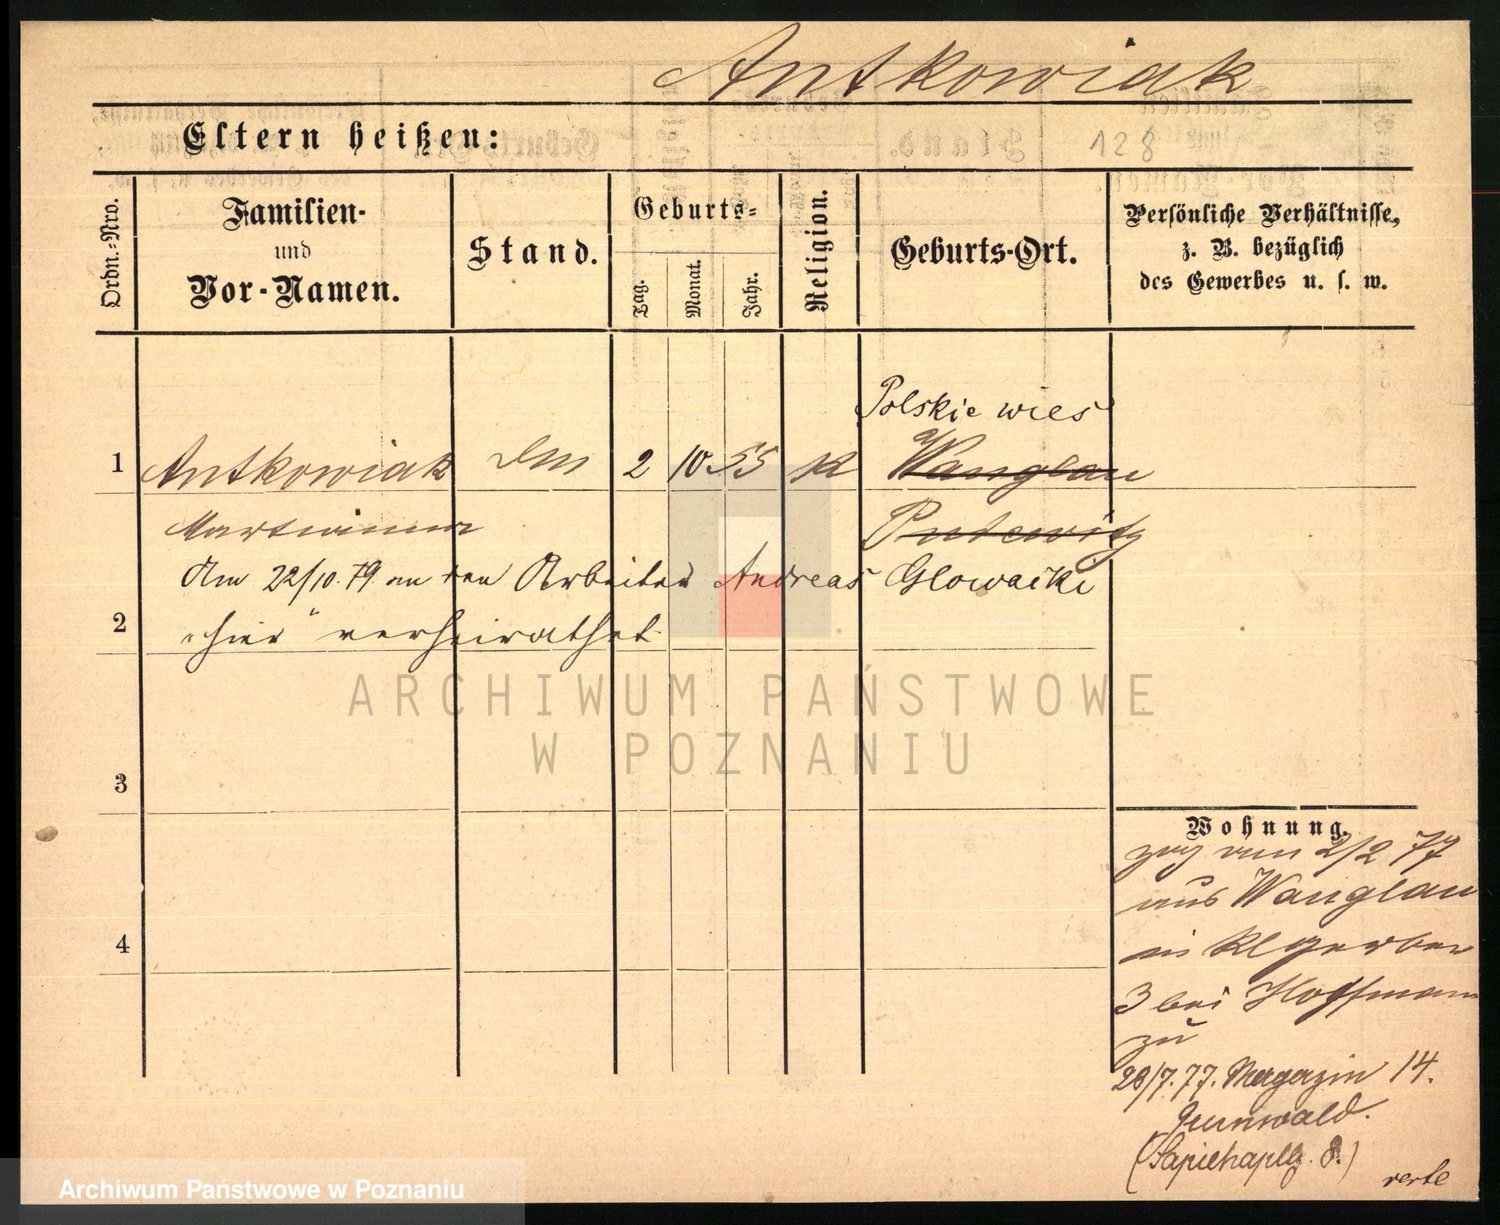 Antkowiak
Eltern heißen:
128
Ordn.-Nro.
Familien-
und
Vor-Namen.
Stand.
Geburts-
Tag.
Monat.
Jahr.
Religion.
Geburts-Ort.
Persönliche Verhältnisse,
z. B. bezüglich
des Gewerbes u. s. w.
Polskie wies
1 Antkowiak Dm 2 10 55 K Wanglau
Martianna
Am 22/10. 79. an den Arbeiter Andreas Glowacki
2 "hier" verheirathet
ARCHIWUM PAŃSTWOWE
W POZNANIU
3
4
Wohnung.
zog am 2/2 77
aus Wanglau
in Kl gerber
3 bei Hoffmann
zu
28/7. 77. Magazin 14.
Grunwald.
(Sapiehapltz. 8.)
verte
Archiwum Państwowe w Poznaniu